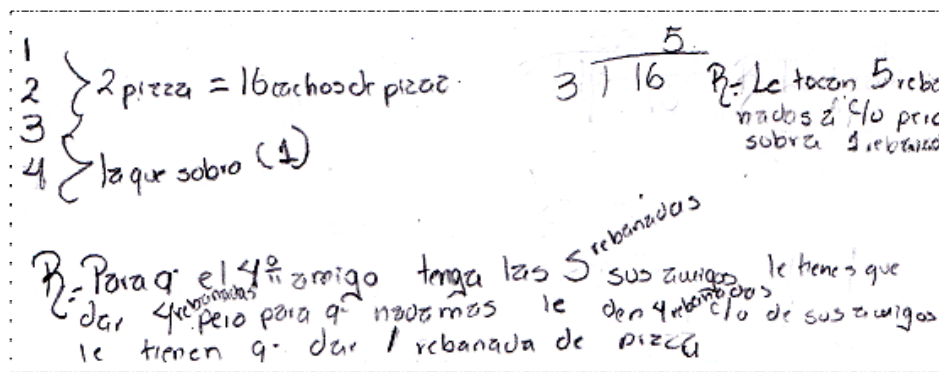 1
2
3
4
2 pizza = 16 cachos de pizaz
la que sobro (1)
5
3 ) 16
R= Le tocan 5 reba
nadas a c/u pero
sobra 1 rebanad
R= Para q' el 4º amigo tenga las 5 rebanadas sus amigos le tienes que
dar 4 rebanadas pero para q' nadamas le den 4 rebanadas c/u de sus amigos
le tienen q' dar 1 rebanada de pizza